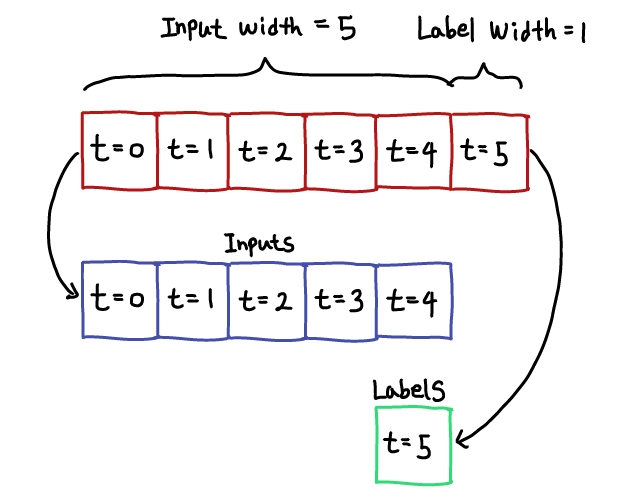 Input width = 5 Label width = 1
t=0 t=1 t=2 t=3 t=4 t=5
Inputs
t=0 t=1 t=2 t=3 t=4
Labels
t=5